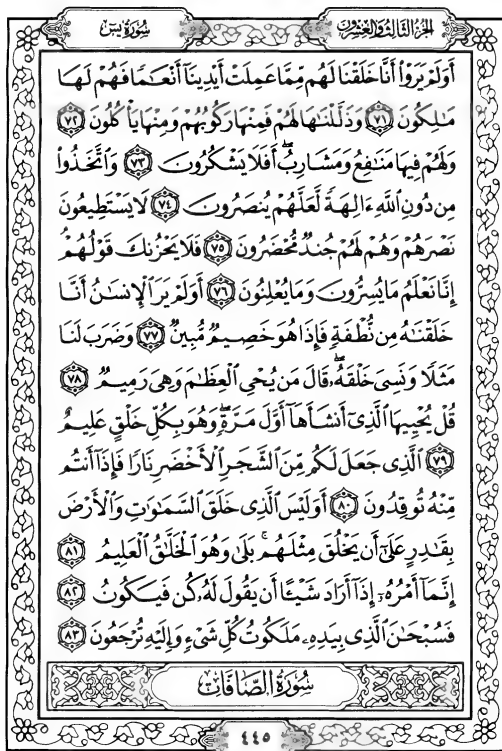 الجزء الثالث والعشرون سورة يس
أَوَلَمْ يَرَوْا۟ أَنَّا خَلَقْنَا لَهُم مِّمَّا عَمِلَتْ أَيْدِينَآ أَنْعَـٰمًا فَهُمْ لَهَا
مَـٰلِكُونَ ٧١ وَذَلَّلْنَـٰهَا لَهُمْ فَمِنْهَا رَكُوبُهُمْ وَمِنْهَا يَأْكُلُونَ ٧٢
وَلَهُمْ فِيهَا مَنَـٰفِعُ وَمَشَارِبُ ۖ أَفَلَا يَشْكُرُونَ ٧٣ وَٱتَّخَذُوا۟
مِن دُونِ ٱللَّهِ ءَالِهَةً لَّعَلَّهُمْ يُنصَرُونَ ٧٤ لَا يَسْتَطِيعُونَ
نَصْرَهُمْ وَهُمْ لَهُمْ جُندٌ مُّحْضَرُونَ ٧٥ فَلَا يَحْزُنكَ قَوْلُهُمْ ۘ
إِنَّا نَعْلَمُ مَا يُسِرُّونَ وَمَا يُعْلِنُونَ ٧٦ أَوَلَمْ يَرَ ٱلْإِنسَـٰنُ أَنَّا
خَلَقْنَـٰهُ مِن نُّطْفَةٍ فَإِذَا هُوَ خَصِيمٌ مُّبِينٌ ٧٧ وَضَرَبَ لَنَا
مَثَلًا وَنَسِىَ خَلْقَهُۥ ۖ قَالَ مَن يُحْىِ ٱلْعِظَـٰمَ وَهِىَ رَمِيمٌ ٧٨
قُلْ يُحْيِيهَا ٱلَّذِىٓ أَنشَأَهَآ أَوَّلَ مَرَّةٍ ۖ وَهُوَ بِكُلِّ خَلْقٍ عَلِيمٌ
٧٩ ٱلَّذِى جَعَلَ لَكُم مِّنَ ٱلشَّجَرِ ٱلْأَخْضَرِ نَارًا فَإِذَآ أَنتُم
مِّنْهُ تُوقِدُونَ ٨٠ أَوَلَيْسَ ٱلَّذِى خَلَقَ ٱلسَّمَـٰوَٰتِ وَٱلْأَرْضَ
بِقَـٰدِرٍ عَلَىٰٓ أَن يَخْلُقَ مِثْلَهُم ۚ بَلَىٰ وَهُوَ ٱلْخَلَّـٰقُ ٱلْعَلِيمُ ٨١
إِنَّمَآ أَمْرُهُۥٓ إِذَآ أَرَادَ شَيْـًٔا أَن يَقُولَ لَهُۥ كُن فَيَكُونُ ٨٢
فَسُبْحَـٰنَ ٱلَّذِى بِيَدِهِۦ مَلَكُوتُ كُلِّ شَىْءٍ وَإِلَيْهِ تُرْجَعُونَ ٨٣
سُورَةُ الصَّافَّات
٤٤٥